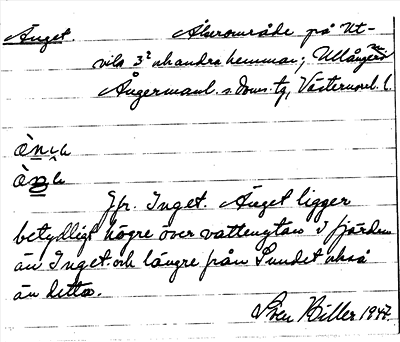 Änget. Älvområde på Ut-
vik 3² och andra hemman; Ullånger sn
Ångermanl. s. doms. tg, Västernorrl. l.
Jfr. Inget. Änget ligger
betydligt högre över vattenytan i fjärden
än Inget och längre från Sundet också
än detta.
Sven Biller 1947.